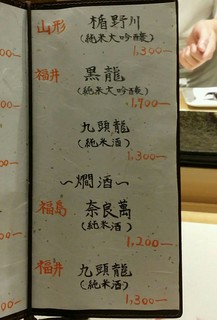 山形 楯野川
(純米大吟醸)
1,300—
福井 黒龍
(純米大吟醸)
1,700—
九頭龍
(純米酒)
1,300—
〜燗酒〜
福島 奈良萬
(純米酒)
1,200—
福井 九頭龍
(純米酒)
1,300—